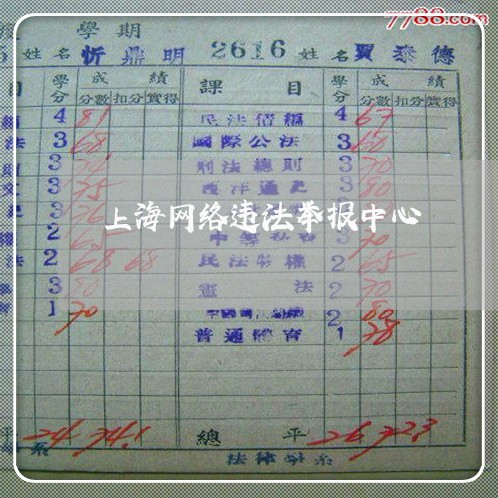 7788.com
學期
姓名 忻鼎明 2616 姓名 賈泰德
目 學分 成績 分數 扣分 實得 課目 學分 成績 分數 扣分 實得
4 81 民法債編 4 67
法 3 68 國際公法 3 60
3 刑法總則 3 70
3 75 西洋通史 3 80
3 76 3
上海网络违法举报中心
權 2 65 70
法 2 68 68 民法物權 2 65
3 80 憲法 2 70
育 1 70 2 80
普通體育 1 78
平 24 74.1 總平 26 72.3
系 法律學系